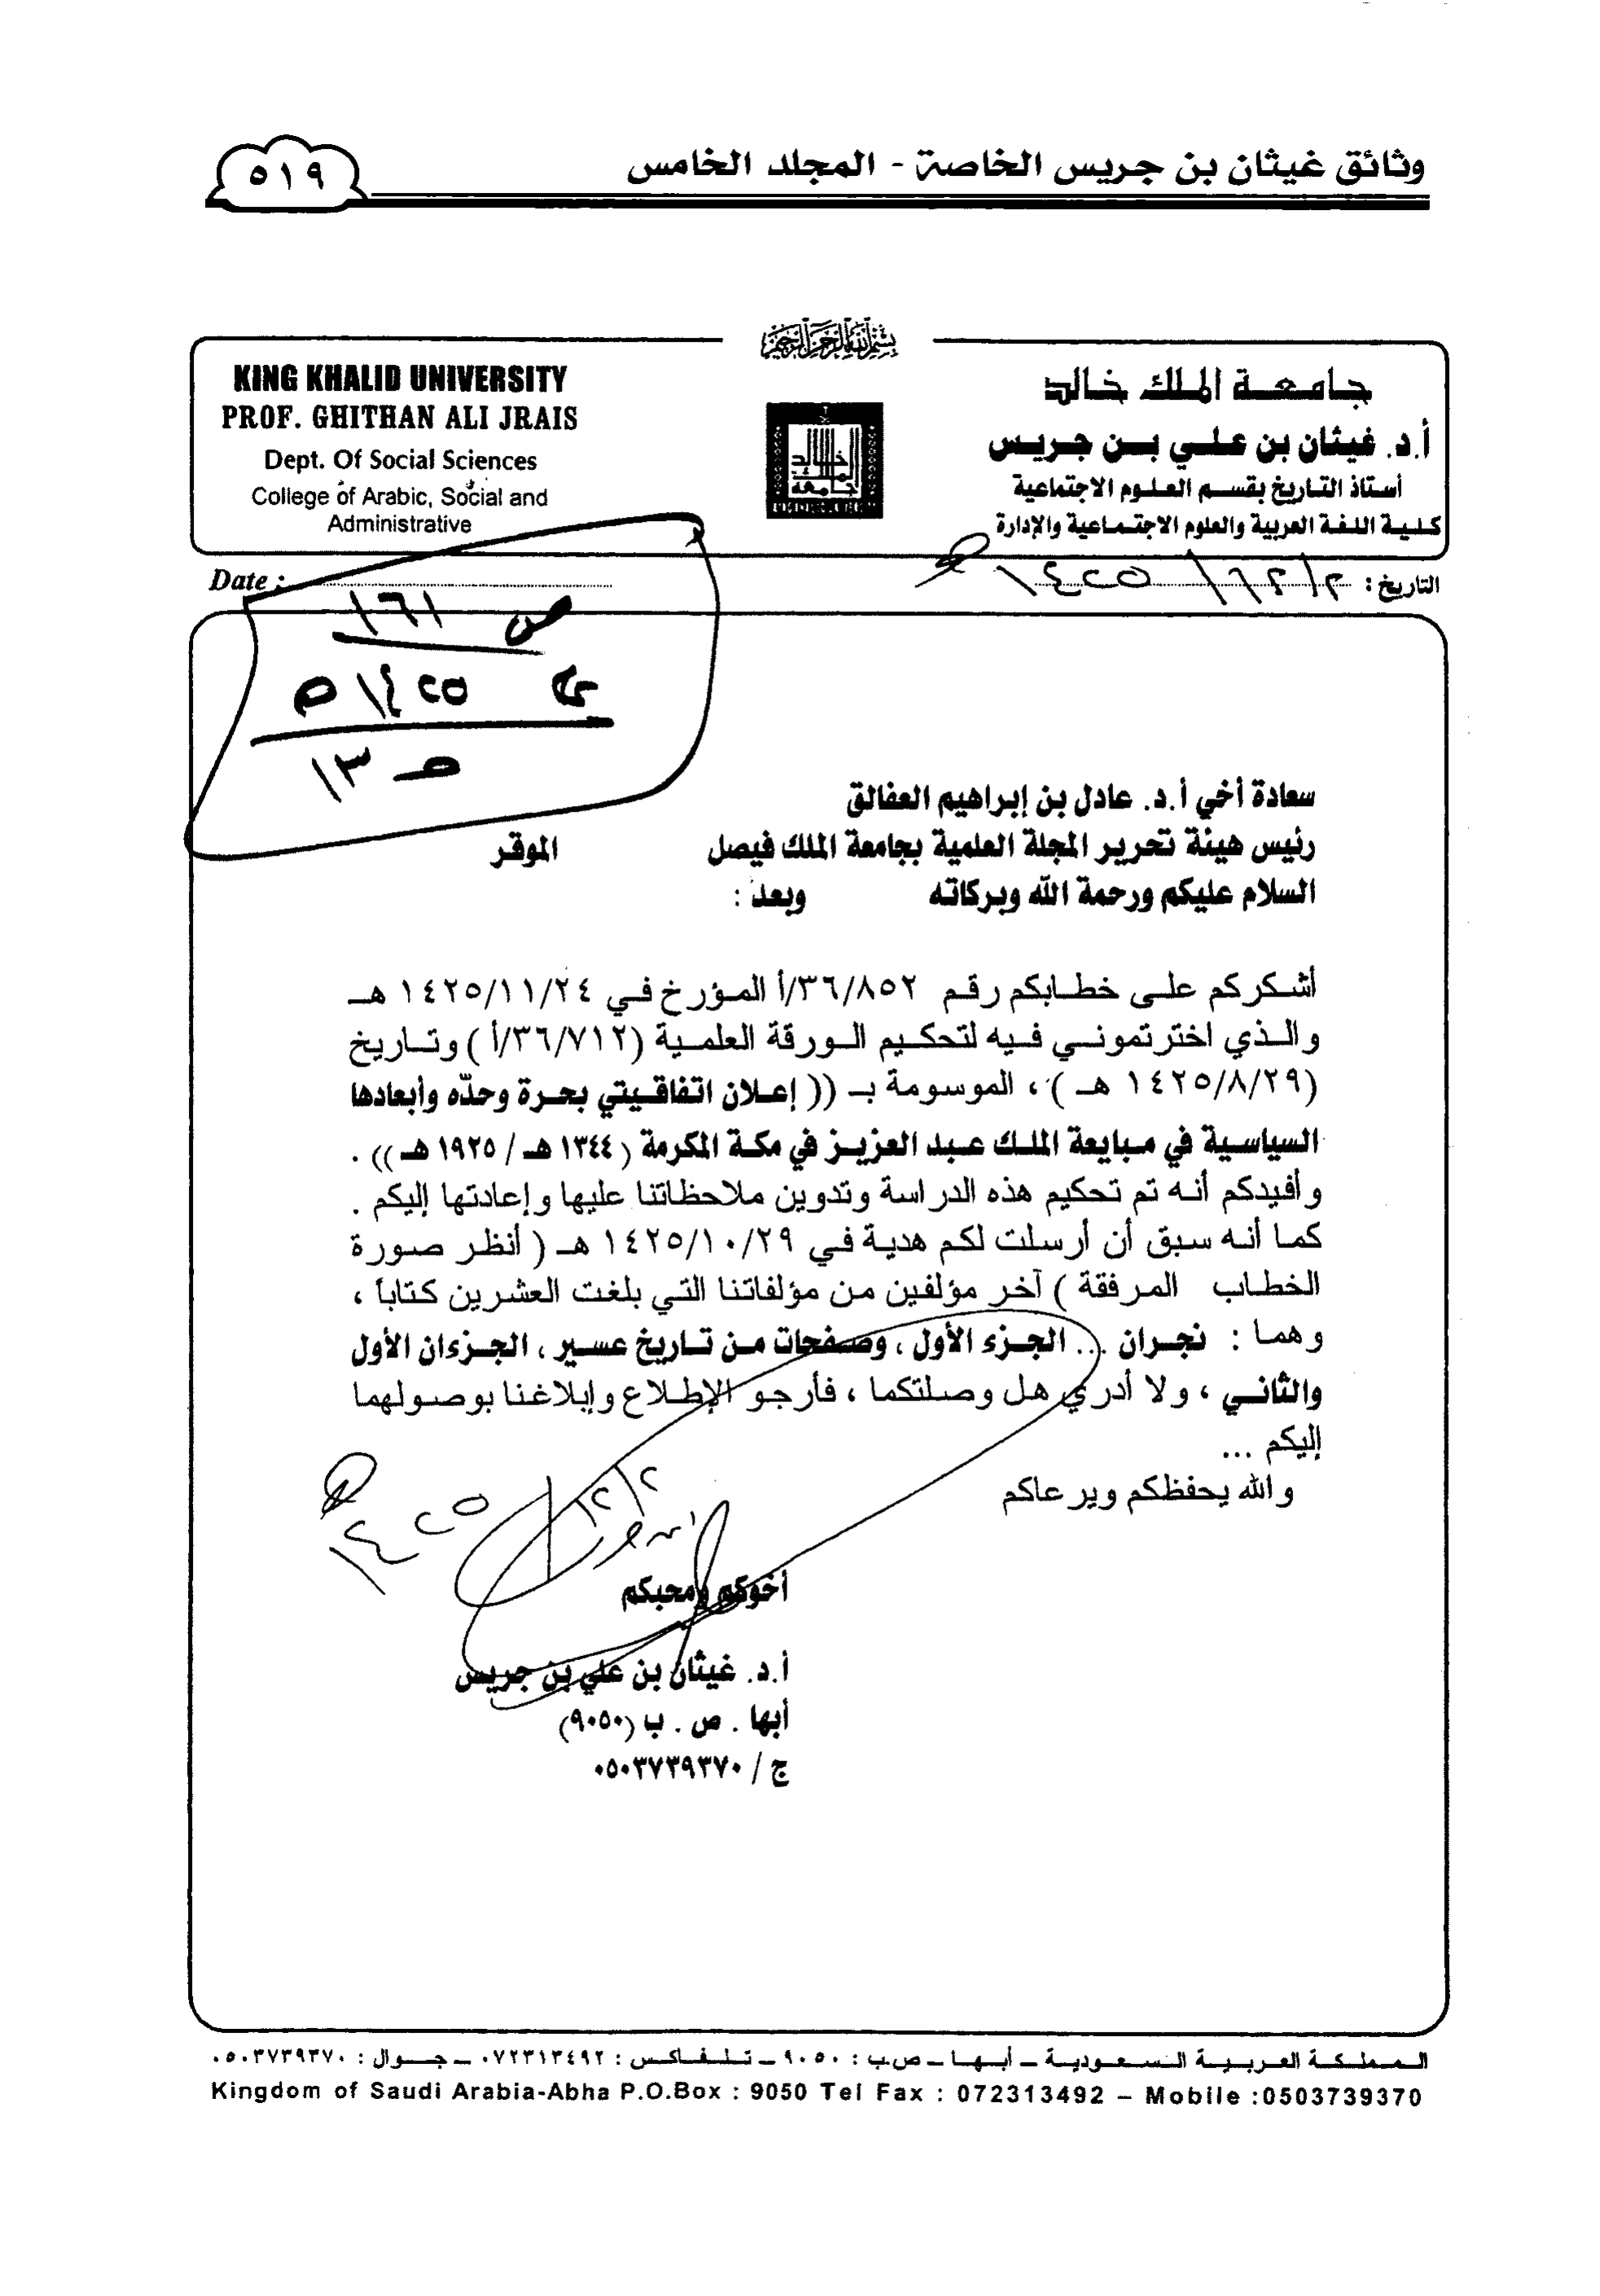 وثائق غيثان بن جريس الخاصة - المجلد الخامس
٥١٩
بسم الله الرحمن الرحيم
KING KHALID UNIVERSITY
PROF. GHITHAN ALI JRAIS
Dept. Of Social Sciences
College of Arabic, Social and
Administrative
جامعة الملك خالد
أ.د. غيثان بن علي بن جريس
أستاذ التاريخ بقسم العلوم الاجتماعية
كلية اللغة العربية والعلوم الاجتماعية والإدارة
Date :
التاريخ : ٢/١٢/١٤٢٥هـ
ص ١٦١
١٤٢٥هـ
١٣
سعادة أخي أ.د. عادل بن إبراهيم العفالق
رئيس هيئة تحرير المجلة العلمية بجامعة الملك فيصل الموقر
السلام عليكم ورحمة الله وبركاته وبعد :
أشكركم على خطابكم رقم ٣٦/٨٥٢/أ المؤرخ في ١٤٢٥/١١/٢٤ هـ
والذي اخترتموني فيه لتحكيم الورقة العلمية (٣٦/٧١٢/أ ) وتاريخ
(١٤٢٥/٨/٢٩ هـ )، الموسومة بـ (( إعلان اتفاقيتي بحرة وحدّه وأبعادها
السياسية في مبايعة الملك عبد العزيز في مكة المكرمة ( ١٣٤٤ هـ / ١٩٢٥ هـ )) .
وأفيدكم أنه تم تحكيم هذه الدراسة وتدوين ملاحظاتنا عليها وإعادتها إليكم .
كما أنه سبق أن أرسلت لكم هدية في ١٤٢٥/١٠/٢٩ هـ ( أنظر صورة
الخطاب المرفقة ) آخر مؤلفين من مؤلفاتنا التي بلغت العشرين كتاباً ،
وهما : نجران ... الجزء الأول ، وصفحات من تاريخ عسير ، الجزءان الأول
والثاني ، ولا أدري هل وصلتكما ، فأرجو الإطلاع وإبلاغنا بوصولهما
إليكم ...
والله يحفظكم ويرعاكم
٢/١٢/١٤٢٥هـ
أخوكم ومحبكم
أ.د. غيثان بن علي بن جريس
أبها . ص . ب (٩٠٥٠)
ج / ٠٥٠٣٧٣٩٣٧٠
المملكة العربية السعودية - أبها - ص.ب : ٩٠٥٠ - تلفاكس : ٠٧٢٣١٣٤٩٢ - جوال : ٠٥٠٣٧٣٩٣٧٠
Kingdom of Saudi Arabia-Abha P.O.Box : 9050 Tel Fax : 072313492 – Mobile :0503739370